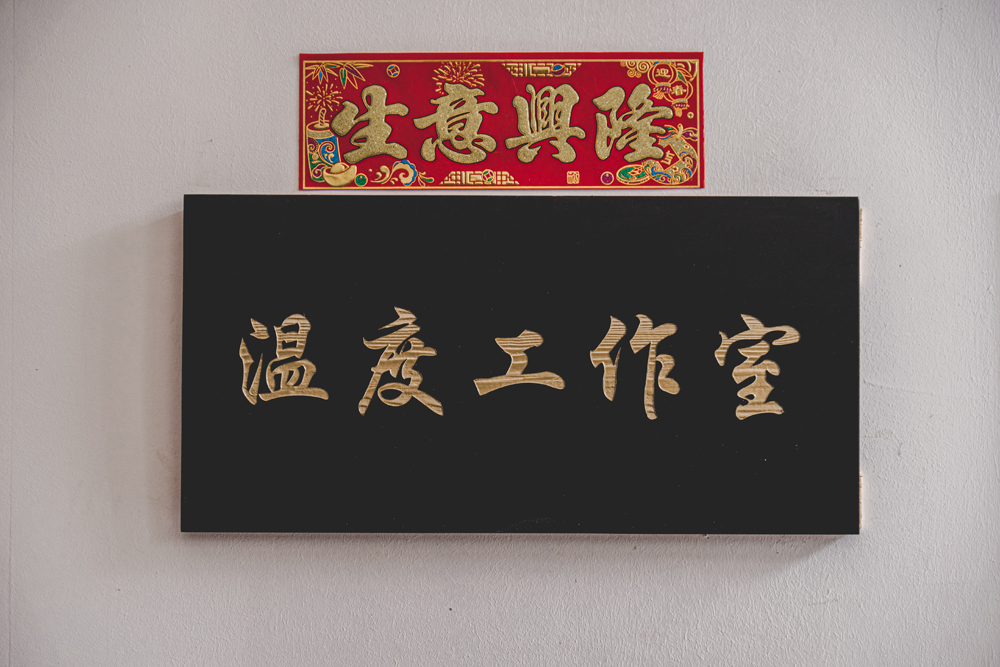 生意興隆
迎春
温度工作室